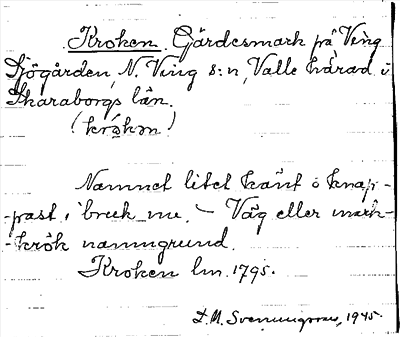 Kroken. Gärdesmark på Ving
Sjögården, N. Ving s:n, Valle härad i
Skaraborgs län.
(krókən)
Namnet litet känt o knap-
-past i bruk nu. – Väg eller mark-
-krök namngrund.
Kroken lm. 1795.
L. M. Svenungsson, 1945.